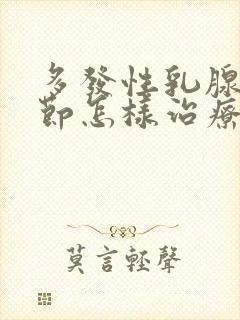 多發性乳腺
節怎樣治療
莫言輕聲